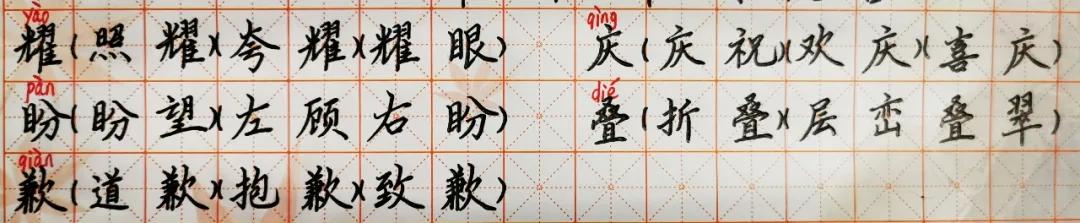 yào qìng
耀(照耀)(夸耀)(耀眼) 庆(庆祝)(欢庆)(喜庆)
pàn dié
盼(盼望)(左顾右盼) 叠(折叠)(层峦叠翠)
qiàn
歉(道歉)(抱歉)(致歉)